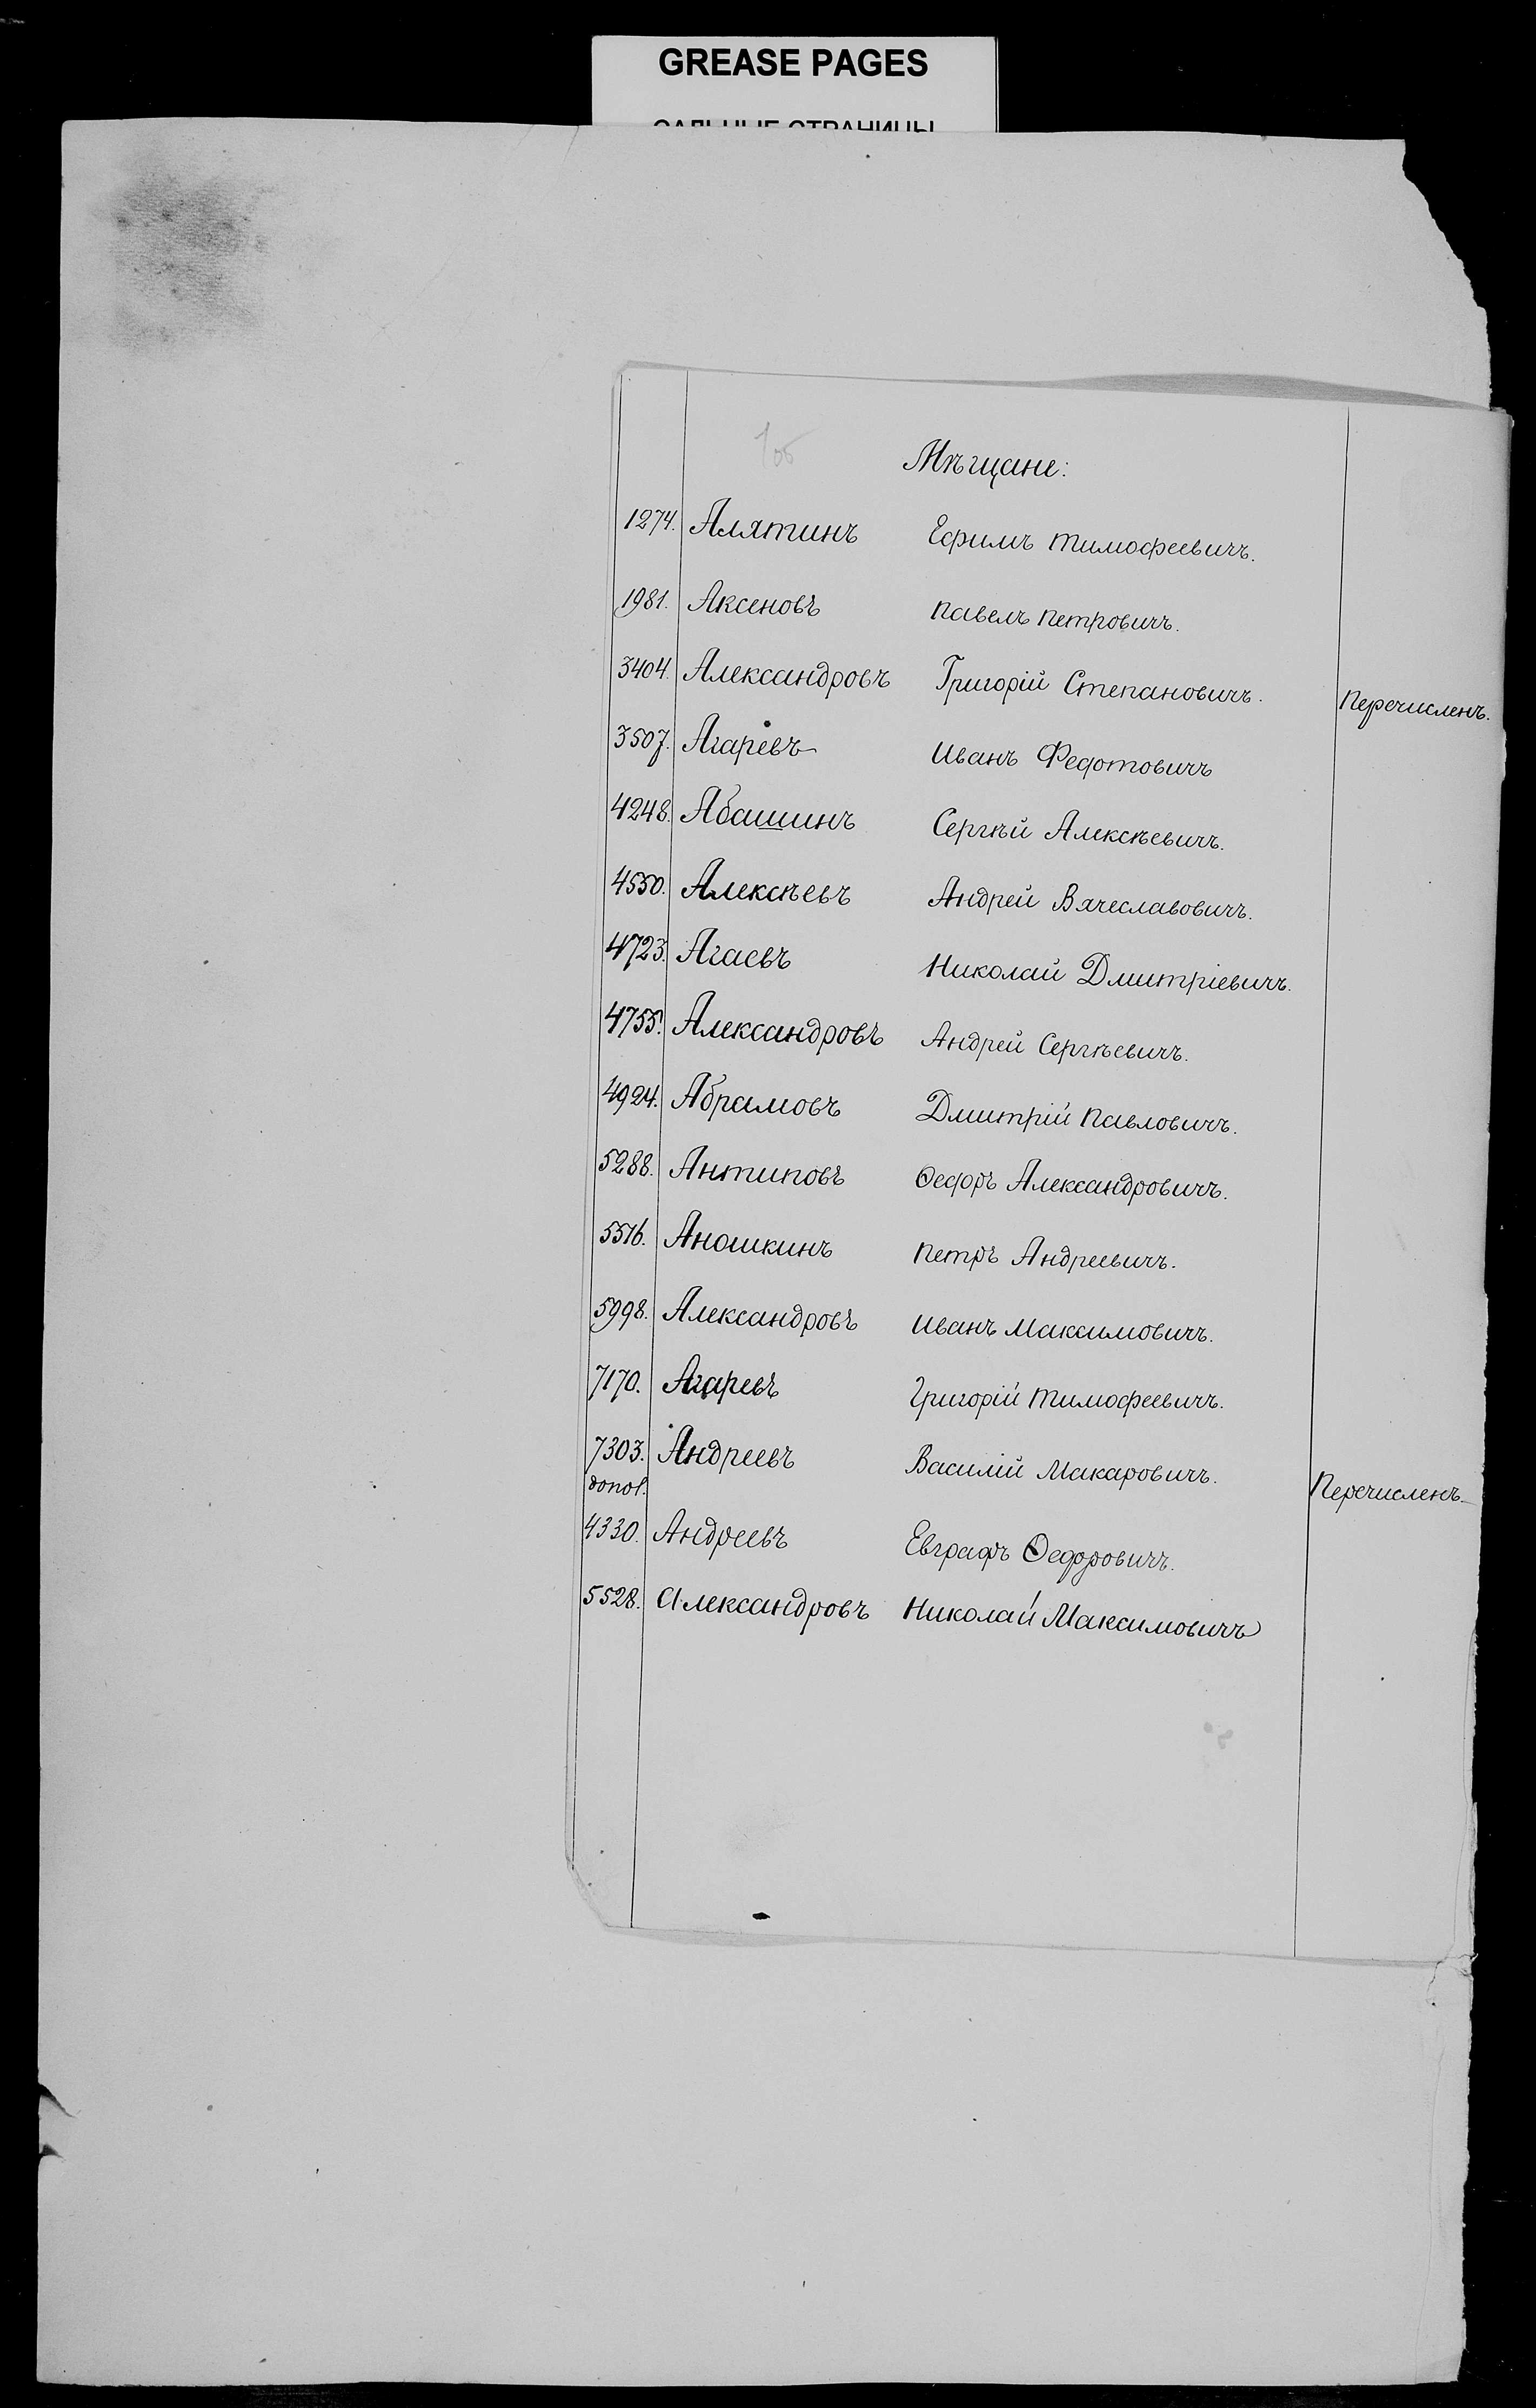 GREASE PAGES
САЛЬНЫЕ СТРАНИЦЫ
1об
Мѣщане:
1274. Алятинъ Ефимъ Тимофеевичъ.
1981. Аксеновъ Павелъ Петровичъ.
3404. Александровъ Григорій Степановичъ. Перечисленъ.
3507. Агаревъ Иванъ Федотовичъ
4248. Абашинъ Сергѣй Алексѣевичъ.
4550. Алексѣевъ Андрей Вячеславовичъ.
4723. Агаевъ Николай Дмитріевичъ.
4755. Александровъ Андрей Сергѣевичъ.
4924. Абрамовъ Дмитрій Павловичъ.
5288. Антиповъ Ѳедоръ Александровичъ.
5516. Аношкинъ Петръ Андреевичъ.
5998. Александровъ Иванъ Максимовичъ.
7170. Агаревъ Григорій Тимофеевичъ.
7303. Андреевъ Василій Макаровичъ. Перечисленъ.
допол.
4330. Андреевъ Евграфъ Ѳедоровичъ.
5528. Александровъ Николай Максимовичъ